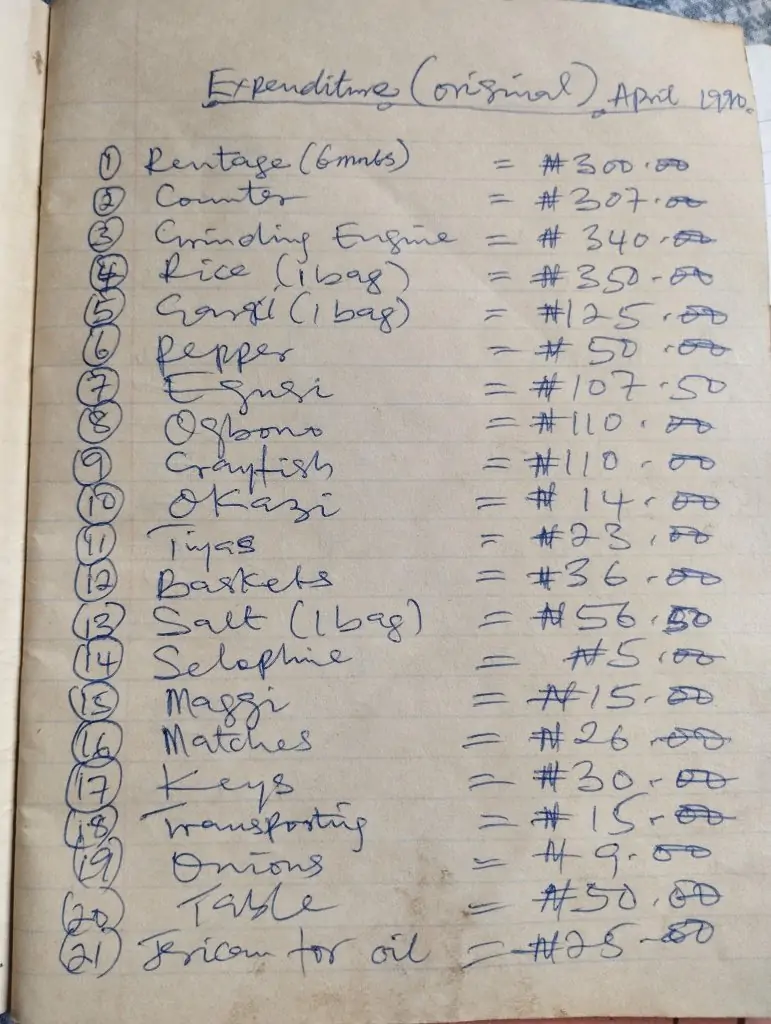 Expenditure (original) April 1990.
① Rentage (6mnths) = ₦300.00
② Counter = ₦307.00
③ Grinding Engine = ₦340.00
④ Rice (1bag) = ₦350.00
⑤ (1bag) = ₦125.00
⑥ Pepper = ₦50.00
⑦ Egusi = ₦107.50
⑧ Ogbono = ₦110.00
⑨ Crayfish = ₦110.00
⑩ Okazi = ₦14.00
⑪ = ₦23.00
⑫ Baskets = ₦36.00
⑬ Salt (1bag) = ₦56.50
⑭ Selophine = ₦5.00
⑮ Maggi = ₦15.00
⑯ Matches = ₦26.00
⑰ Keys = ₦30.00
⑱ Transporting = ₦15.00
⑲ Onions = ₦9.00
⑳ Table = ₦50.00
㉑ Jerican for oil = ₦25.00